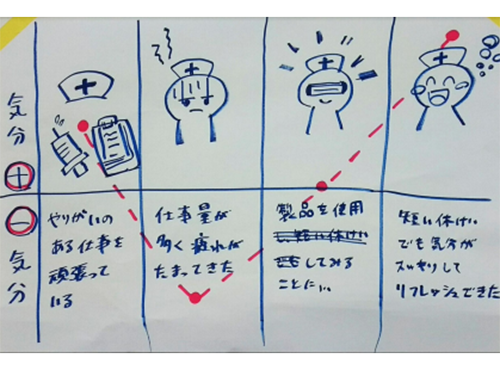 気分
⊕
⊖
気分
やりがいの
ある仕事を
頑張って
いる
仕事量が
多く疲れが
たまってきた
製品を使用
してみる
ことに…
短い休けい
でも気分が
スッキリして
リフレッシュできた